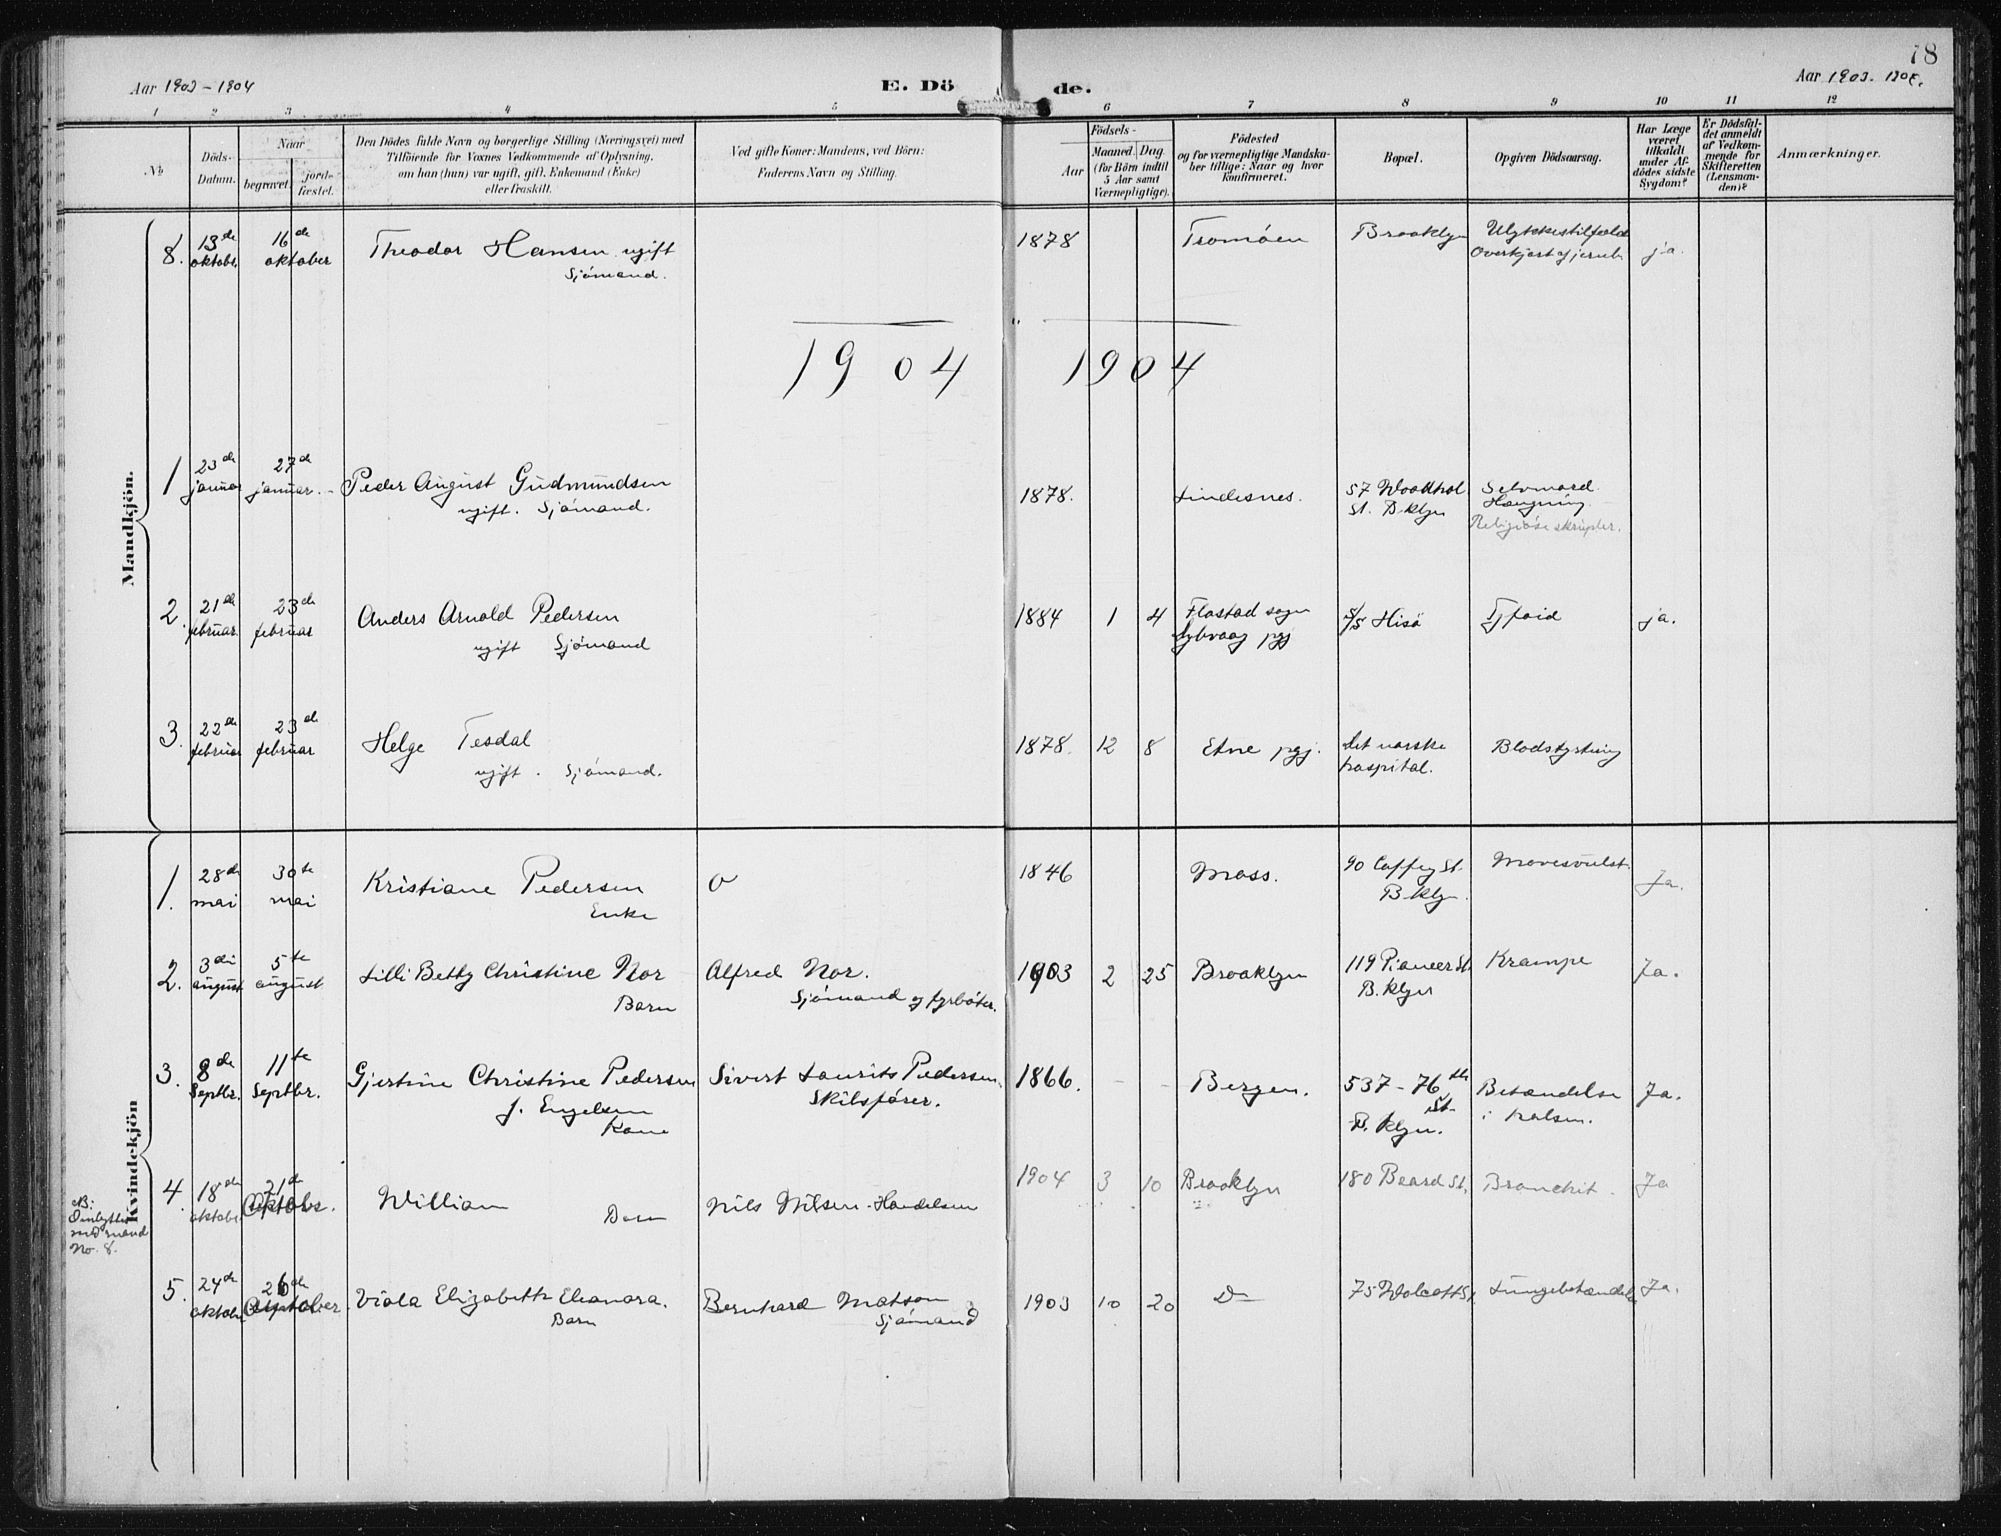 78
Aar 1903-1904
E. Dö
de.
Aar 1903. 1904.
1 2 3 4 5 6 7 8 9 10 11 12
No
Döds-
Datum.
Naar
begravet.
jord-
fæstet.
Den Dödes fulde Navn og borgerlige Stilling (Næringsvei) med
Tilföiende for Voxnes Vedkommende af Oplysning,
om han (hun) var ugift, gift, Enkemand (Enke)
eller fraskilt.
Ved gifte Koner: Mandens, ved Börn:
Faderens Navn og Stilling.
Födsels-
Aar
Maaned. Dag
(for Börn indtil
5 Aar samt
Værnepligtige).
Födested
og for værnepligtige Mandska-
ber tillige: Naar og hvor
konfirmeret.
Bopæl.
Opgiven Dödsaarsag.
Har Læge
været
tilkaldt
under Af-
dödes sidste
Sygdom?
Er Dödsfal-
det anmeldt
af Vedkom-
mende for
Skifteretten
(Lensman-
den)?
Anmærkninger.
Mandkjön.
8. 13de 16de Theodor Hansen ugift 1878 Tromöen Brooklyn
oktobr. oktober Sjömand. Overkjört af jernb. ja.
1904 1904
1 23de 27de Peder August Gudmundsen 1878. Lindesnes. 57 Woodhul Selvmord.
januar januar. ugift. Sjömand. St. B.klyn Hængning
Religiöse skrupler.
2. 21de 23de Anders Arnold Pedersen 1884 1 4 Flostad sogn S/S Hisö Tyfoid ja.
februar. februar ugift Sjömand Dybvaag pgj
3. 22de 23de Helge Tesdal 1878. 12 8 Etne pgj. Det norske Blodstyrtning
februar februar ugift. Sjömand. hospital.
Kvindekjön
1. 28de 30te Kristiane Pedersen 0 1846 Moss. 90 Coffey St. Mavesvulst. Ja.
mai mai Enke B.klyn.
2. 3die 5te Lilli Betty Christine Nor Alfred Nor. 1903 2 25 Brooklyn 119 Pioneer St. Krampe Ja.
august august Barn Sjömand og fyrböter. B.klyn
3. 8de 11te Gjertine Christine Pedersen Sivert Laurits Pedersen. 1866. - - Bergen. 537-76th Betændelse Ja.
Septbr. Septbr. f. Engelsen Skibsförer. St. i halsen.
Kone B.klyn.
4. 18de 21de William Nils Nilsen. Handelsm 1904 3 10 Brooklyn 180 Beard St. Bronchit. Ja
oktobr. Oktober. Barn
NB:
Ombyttes
med mand
No. 8.
5. 24de 26de Viola Elizabeth Eleanora. Bernhard Matson 1903 10 20 Do 75 Wolcott St. Lungebetændelse Ja.
oktobr. Barn Sjömand